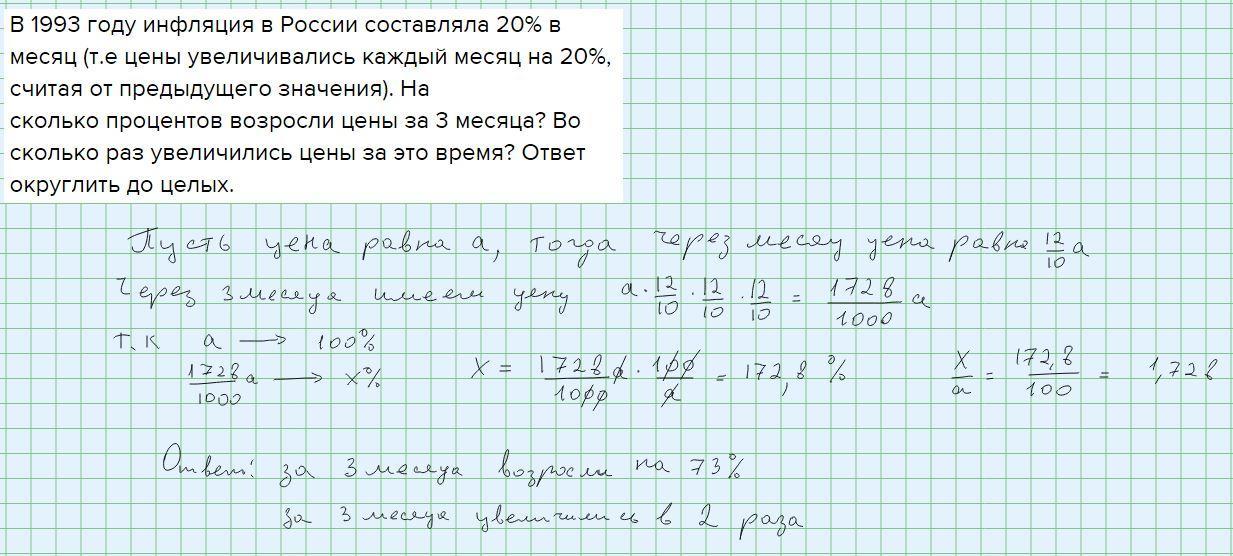 В 1993 году инфляция в России составляла 20% в
месяц (т.е цены увеличивались каждый месяц на 20%,
считая от предыдущего значения). На
сколько процентов возросли цены за 3 месяца? Во
сколько раз увеличились цены за это время? Ответ
округлить до целых.
Пусть цена равна a, тогда через месяц цена равна 12/10 a
Через 3 месяца имеем цену a · 12/10 · 12/10 · 12/10 = 1728/1000 a
т.к a → 100%
1728/1000 a → x% X = 1728a · 100 / 1000 a = 172,8 % X/a = 172,8/100 = 1,728
Ответ: за 3 месяца возросли на 73%
за 3 месяца увеличились в 2 раза